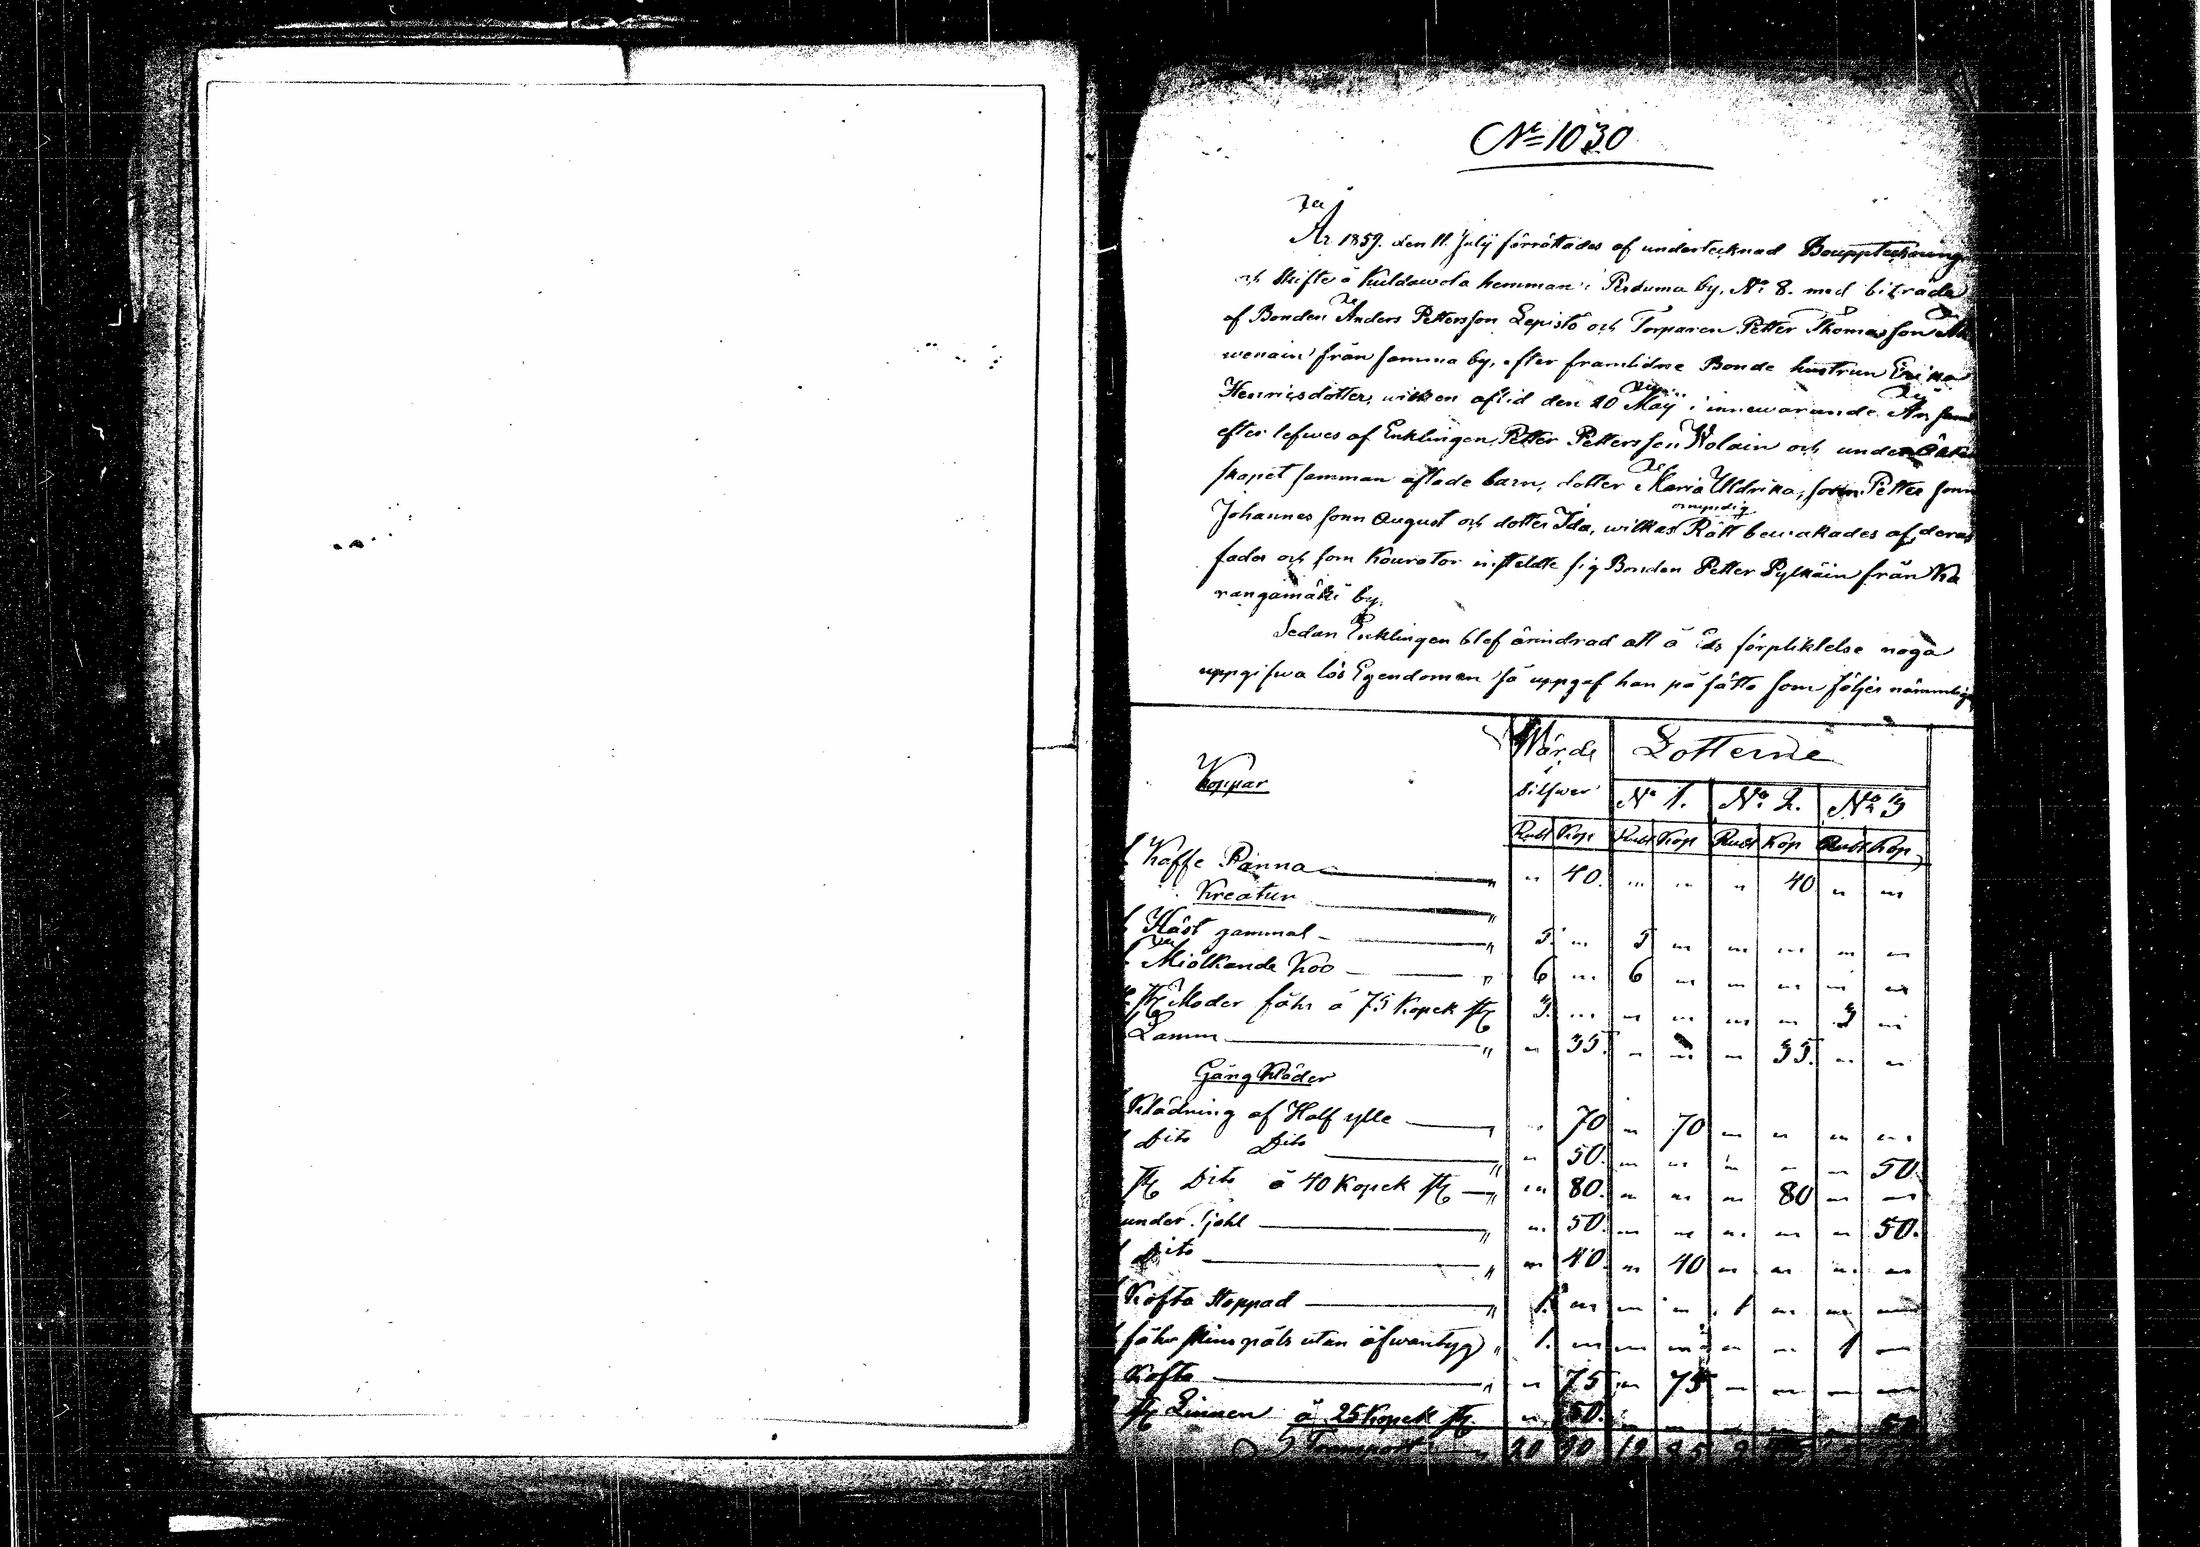 No 1030
År 1859. den 11. Julÿ förrättades af undertecknad Bouppteckning
och skifte å Kuldawola hemman i Perduma by, No 8. med biträde
af Bonden Anders Pettersson Lepistö och Torparen Petter Thomasson
wenain från samma by, efter framlidne Bonde hustrun Erika
Henricsdotter, wilken aflid den 20 Maÿ i innewarande År som
efter lefwes af Enklingen Petter Pettersson Wolain och under Äkten
skapet samman aflade barn, dotter Maria Uldrika, sonn Petter sonn
Johannes sonn August och dotter Ida, wilkas omyndig Rätt bewakades af deras
fader och som Kourator instälde sig Bonden Petter Pylkäin från Ka
rangamäki by.
Sedan Enklingen blef ärindrad att å Eds förpliktelse noga
uppgifwa lös Egendomen så uppgaf han på sätt som följer nämmligen
Wärde i Silfwer Lotterne
Koppar
No 1. No 2. No 3
Rubl Kop Rubl Kop Rubl Kop Rubl Kop
1 Kaffe Panna " " 40. " " " 40 " "
Kreatur "
1 Häst gammal " 5. " 5 " " " " "
1 Miölkande Koo " 6 " 6 " " " " "
st Moder fåhr á 75 Kopek st 3. " " " " " 3 "
Lamm " " 35. " " " 35. " "
Gång Kläder
1 Klädning af Half ylle " 70 " 70 " " " "
1 Dito Dito " " 50. " " " " " 50.
st Dito á 40 Kopek st " " 80. " " " 80 " "
under kjohl " " 50. " " " " " 50.
1 Dito " " 40. " 40 " " " "
1 Kofta stoppad " 1. " " " 1 " " "
1 fåhr skins päls utan öfwantyg " 1. " " " " " 1 "
Kofta " " 75 " 75 " " " "
st Linnen á 25 Kopek st. " 50. " " " " " 50
Transport 20 90 12 85 2